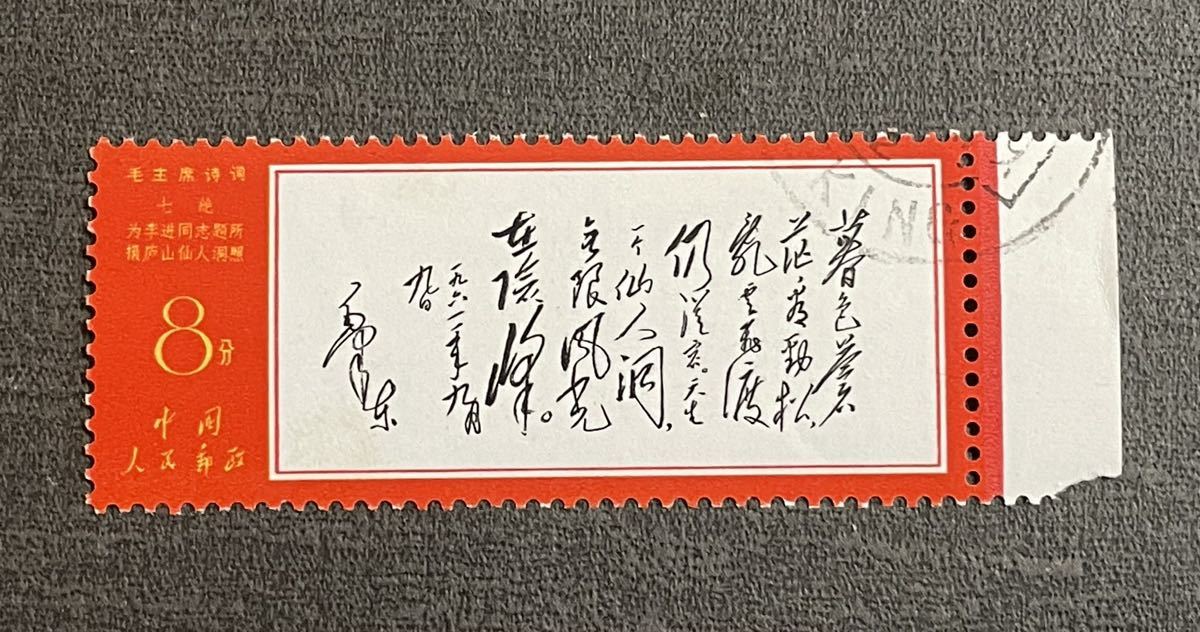 毛主席诗词
七绝
为李进同志题所
摄庐山仙人洞照
8分
中国
人民邮政
暮色苍
茫看劲松，
乱云飞渡
仍从容。天生
一个仙人洞，
无限风光
在险峰。
一九六一年九月
九日
毛泽东